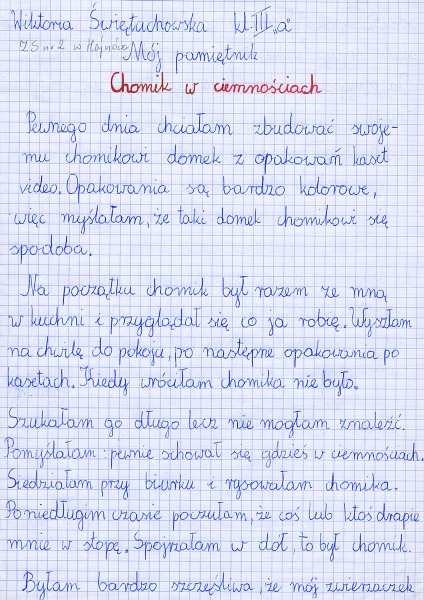 Wiktoria Świętuchowska kl. III „a"
ZS nr 2 w Hajnówce
Mój pamiętnik
Chomik w ciemnościach
Pewnego dnia chciałam zbudować swoje-
mu chomikowi domek z opakowań kaset
video. Opakowania są bardzo kolorowe,
więc myślałam, że taki domek chomikowi się
spodoba.
Na początku chomik był razem ze mną
w kuchni i przyglądał się co ja robię. Wyszłam
na chwilę do pokoju, po następne opakowania po
kasetach. Kiedy wróciłam chomika nie było.
Szukałam go długo lecz nie mogłam znaleźć.
Pomyślałam: pewnie schował się gdzieś w ciemnościach.
Siedziałam przy biurku i rysowałam chomika.
Po niedługim czasie poczułam, że coś lub ktoś drapie
mnie w stopę. Spojrzałam w dół, to był chomik.
Byłam bardzo szczęśliwa, że mój zwierzaczek